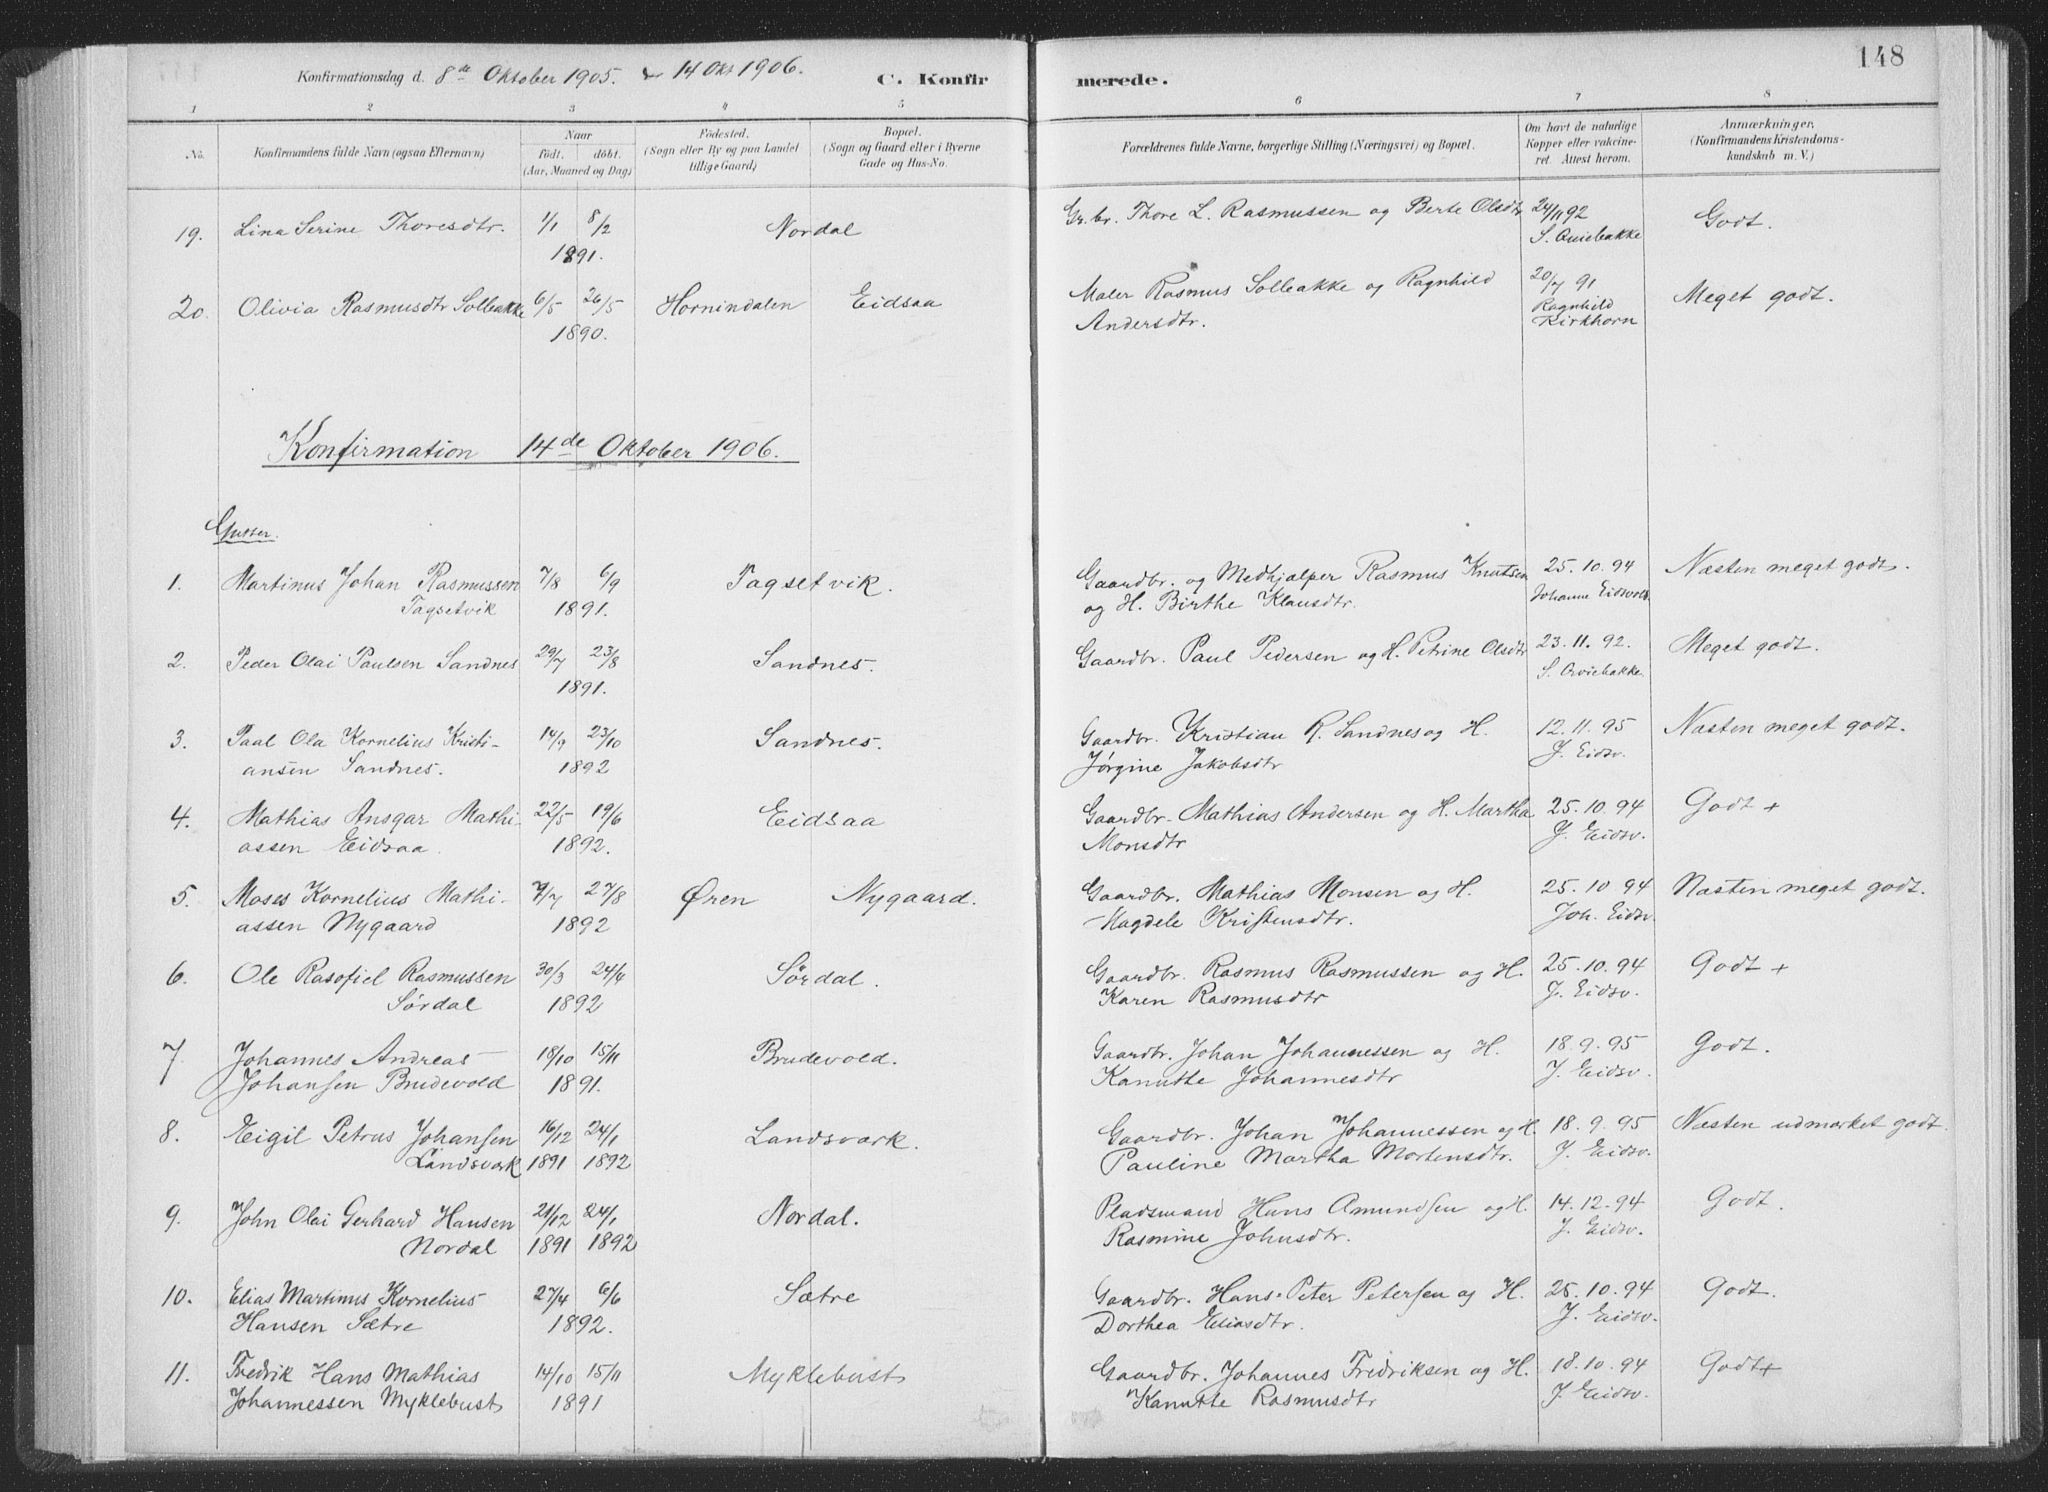 148
Konfirmationsdag d. 8de Oktober 1905. & 14 Okt 1906. C. Konfirmerede.
1 2 3 4 5 6 7 8
No. Konfirmandens fulde Navn (ogsaa Efternavn) Naar födt. döbt. (Aar, Maaned og Dag) Födested. (Sogn eller By og paa Landet tillige Gaard) Bopæl. (Sogn og Gaard eller i Byerne Gade og Hus-No. Forældrenes fulde Navne, borgerlige Stilling (Næringsvei) og Bopæl. Om havt de naturlige Kopper eller vakcineret. Attest herom. Anmærkninger, (Konfirmandens Kristendomskundskab m. V.)
19. Lina Serine Thoresdtr. 1/1 8/2 Nordal Gr. br. Thore L. Rasmussen og Berte Olsdtr 24/11 92 Godt.
1891. S. Qviebakke
20. Olivia Rasmusdtr Solbakke 6/5 26/5 Hornindalen Eidsaa Maler Rasmus Solbakke og Ragnhild 20/7 91 Meget godt.
1890. Andersdtr. Ragnhild
Kirkhorn
Konfirmation 14de Oktober 1906.
Gutter.
1. Martinus Johan Rasmussen 7/8 6/9 Tagsetvik. Gaardbr. og Medhjælper Rasmus Knutsen 25.10.94 Næsten meget godt.
Tagsetvik 1891. og H. Birthe Klausdtr. Johanne Eidsvold.
2. Peder Olai Paulsen Sandnes 29/7 23/8 Sandnes. Gaardbr. Paul Pedersen og H. Petrine Olsdtr 23.11.92. Meget godt.
1891. S. Qviebakke.
3. Paal Ola Kornelius Kristi- 14/9 23/10 Sandnes. Gaardbr. Kristian R. Sandnes og H. 12.11.95 Næsten meget godt.
ansen Sandnes. 1892 Jørgine Jakobsdtr J. Eidsv.
4. Mathias Ansgar Mathi- 22/5 19/6 Eidsaa Gaardbr. Mathias Andersen og H. Martha 25.10.94 Godt +
assen Eidsaa. 1892. Monsdtr J. Eidsv.
5. Moses Kornelius Mathi- 7/7 27/8 Øren Nygaard. Gaardbr. Mathias Monsen og H. 25.10 94 Næsten meget godt.
assen Nygaard 1892 Magdele Kristensdtr. Joh. Eidsv.
6. Ole Rasofiel Rasmussen 30/3 24/4 Sørdal. Gaardbr. Rasmus Rasmussen og H. 25.10.94 Godt +
Sørdal 1892 Karen Rasmusdtr J. Eidsv.
7 Johannes Andreas 18/10 15/11 Brudevold. Gaardbr. Johan Johannessen og H. 18.9.95 Godt.
Johansen Brudevold 1891. Kanutte Johannesdtr J. Eidsv.
8. Eigil Petrus Johansen 16/12 24/1 Landsvark. Gaardbr. Johan Johannessen og H. 18.9.95 Næsten udmærket godt.
Landsvark 1891 1892 Pauline Martha Mortensdtr. J. Eidsv.
9. John Olai Gerhard Hansen 21/12 24/1 Nordal. Pladsmand Hans Amundsen og H. 14.12.94 Godt.
Nordal 1891 1892 Rasmine Johnsdtr. J. Eidsv.
10. Elias Martinus Kornelius 27/4 6/6 Sætre Gaardbr. Hans-Peter Petersen og H. 25.10.94 Godt.
Hansen Sætre 1892. Dorthea Eliasdtr. J. Eidsv.
11. Fredrik Hans Mathias 14/10 15/11 Myklebust Gaardbr. Johannes Fredriksen og H. 18.10.94 Godt +
Johannessen Myklebust 1891 Kanutte Rasmusdtr J. Eidsv.